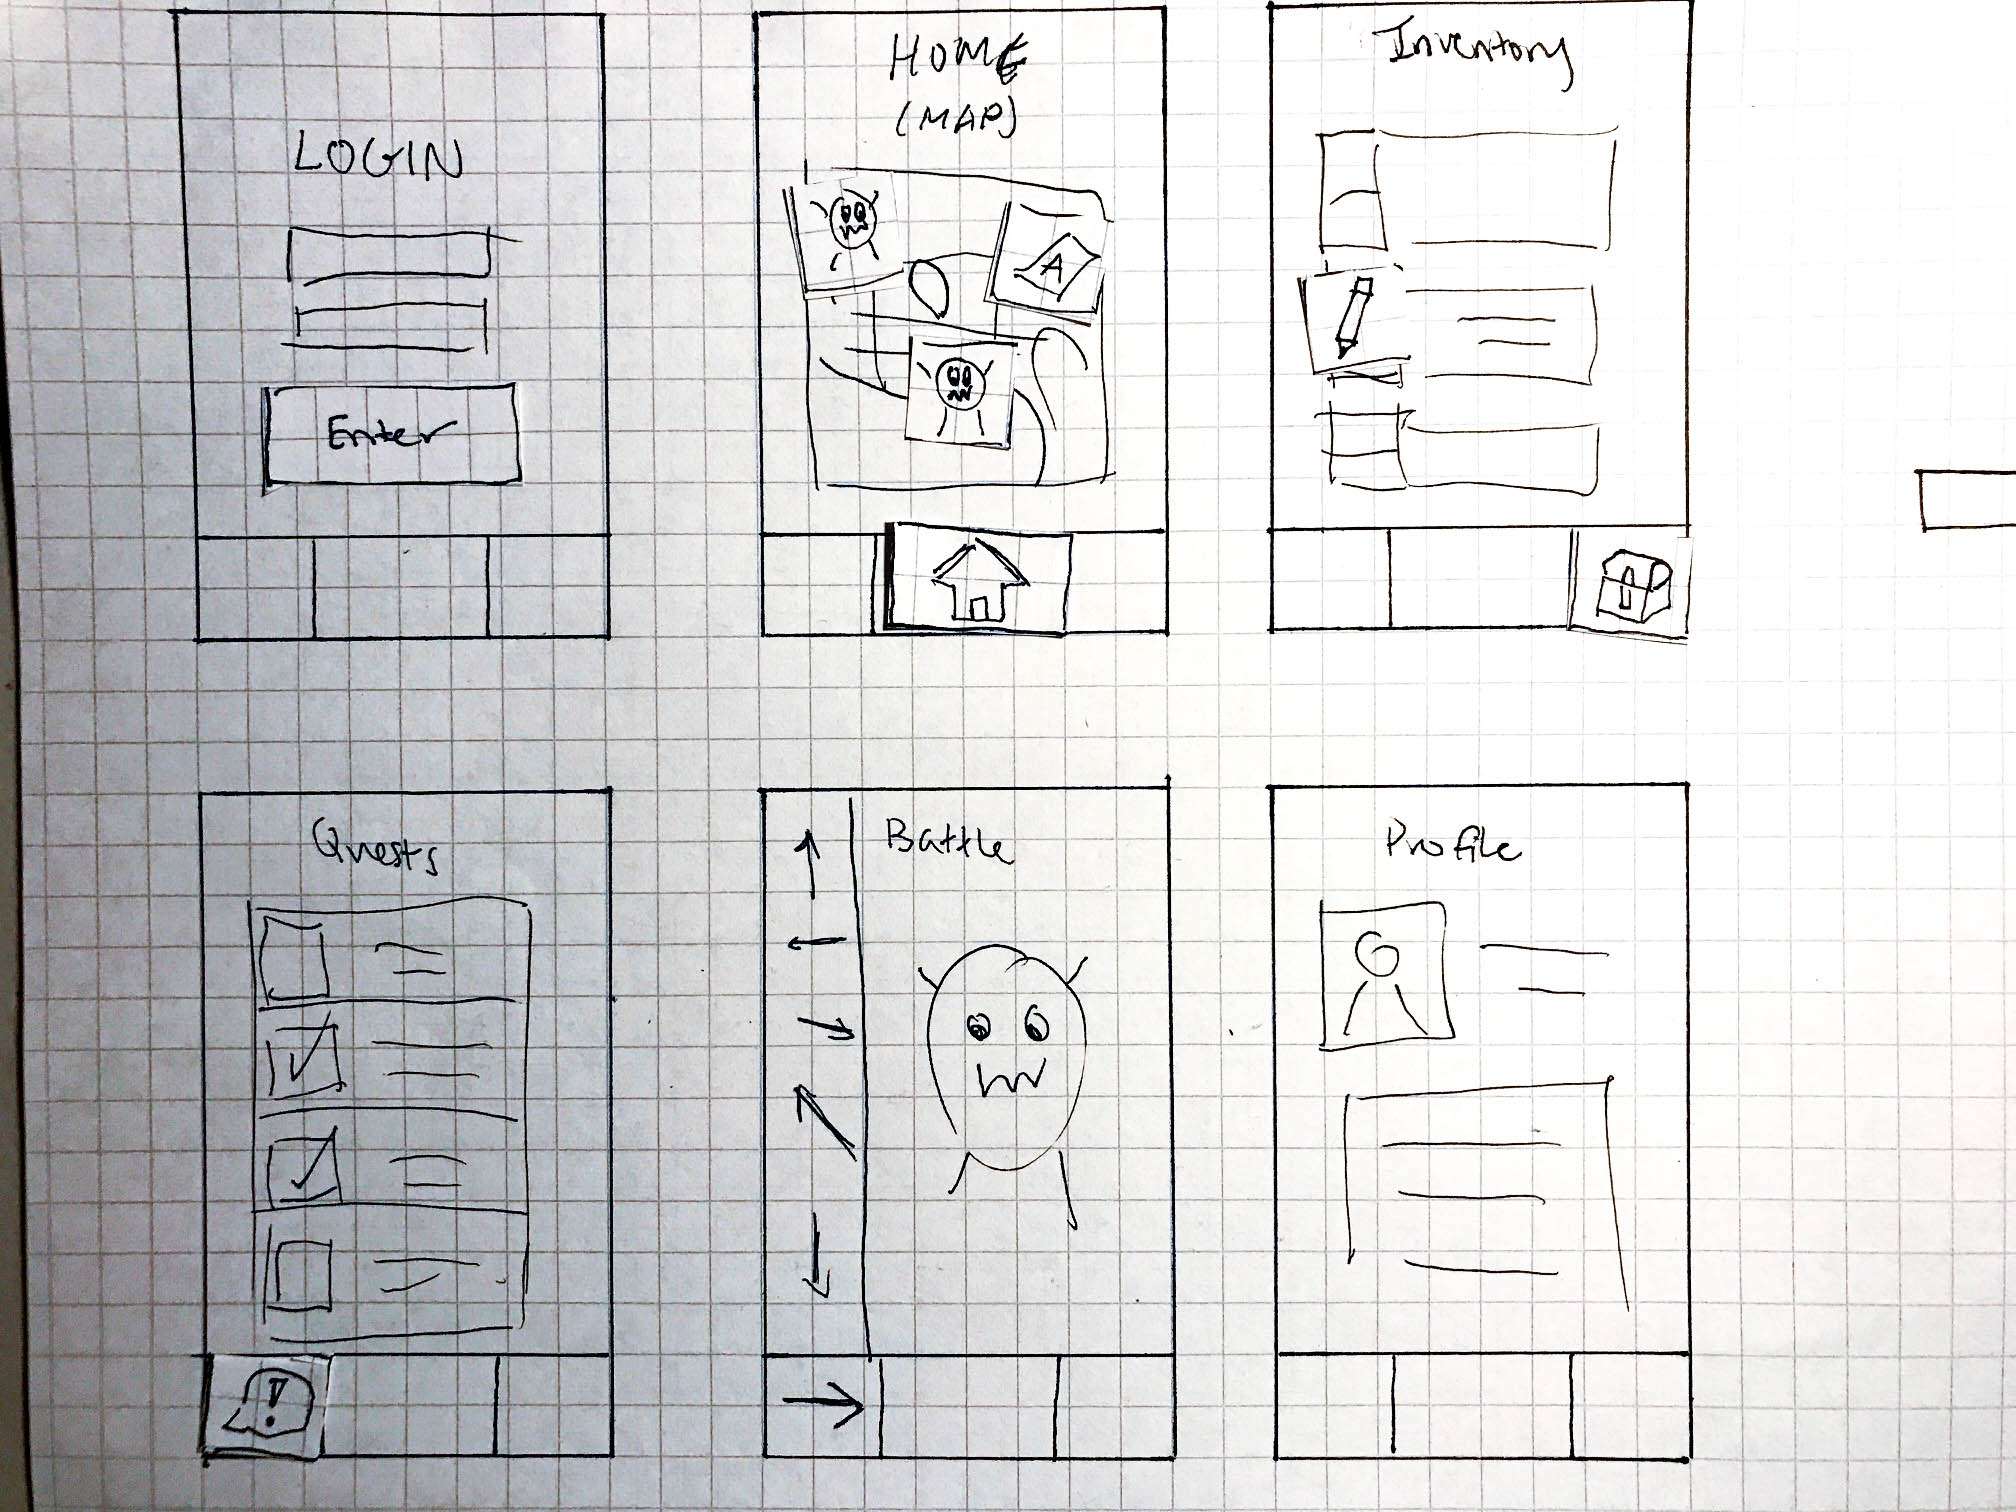 LOGIN
Enter
HOME
(MAP)
A
Inventory
Quests
!
Battle
Profile